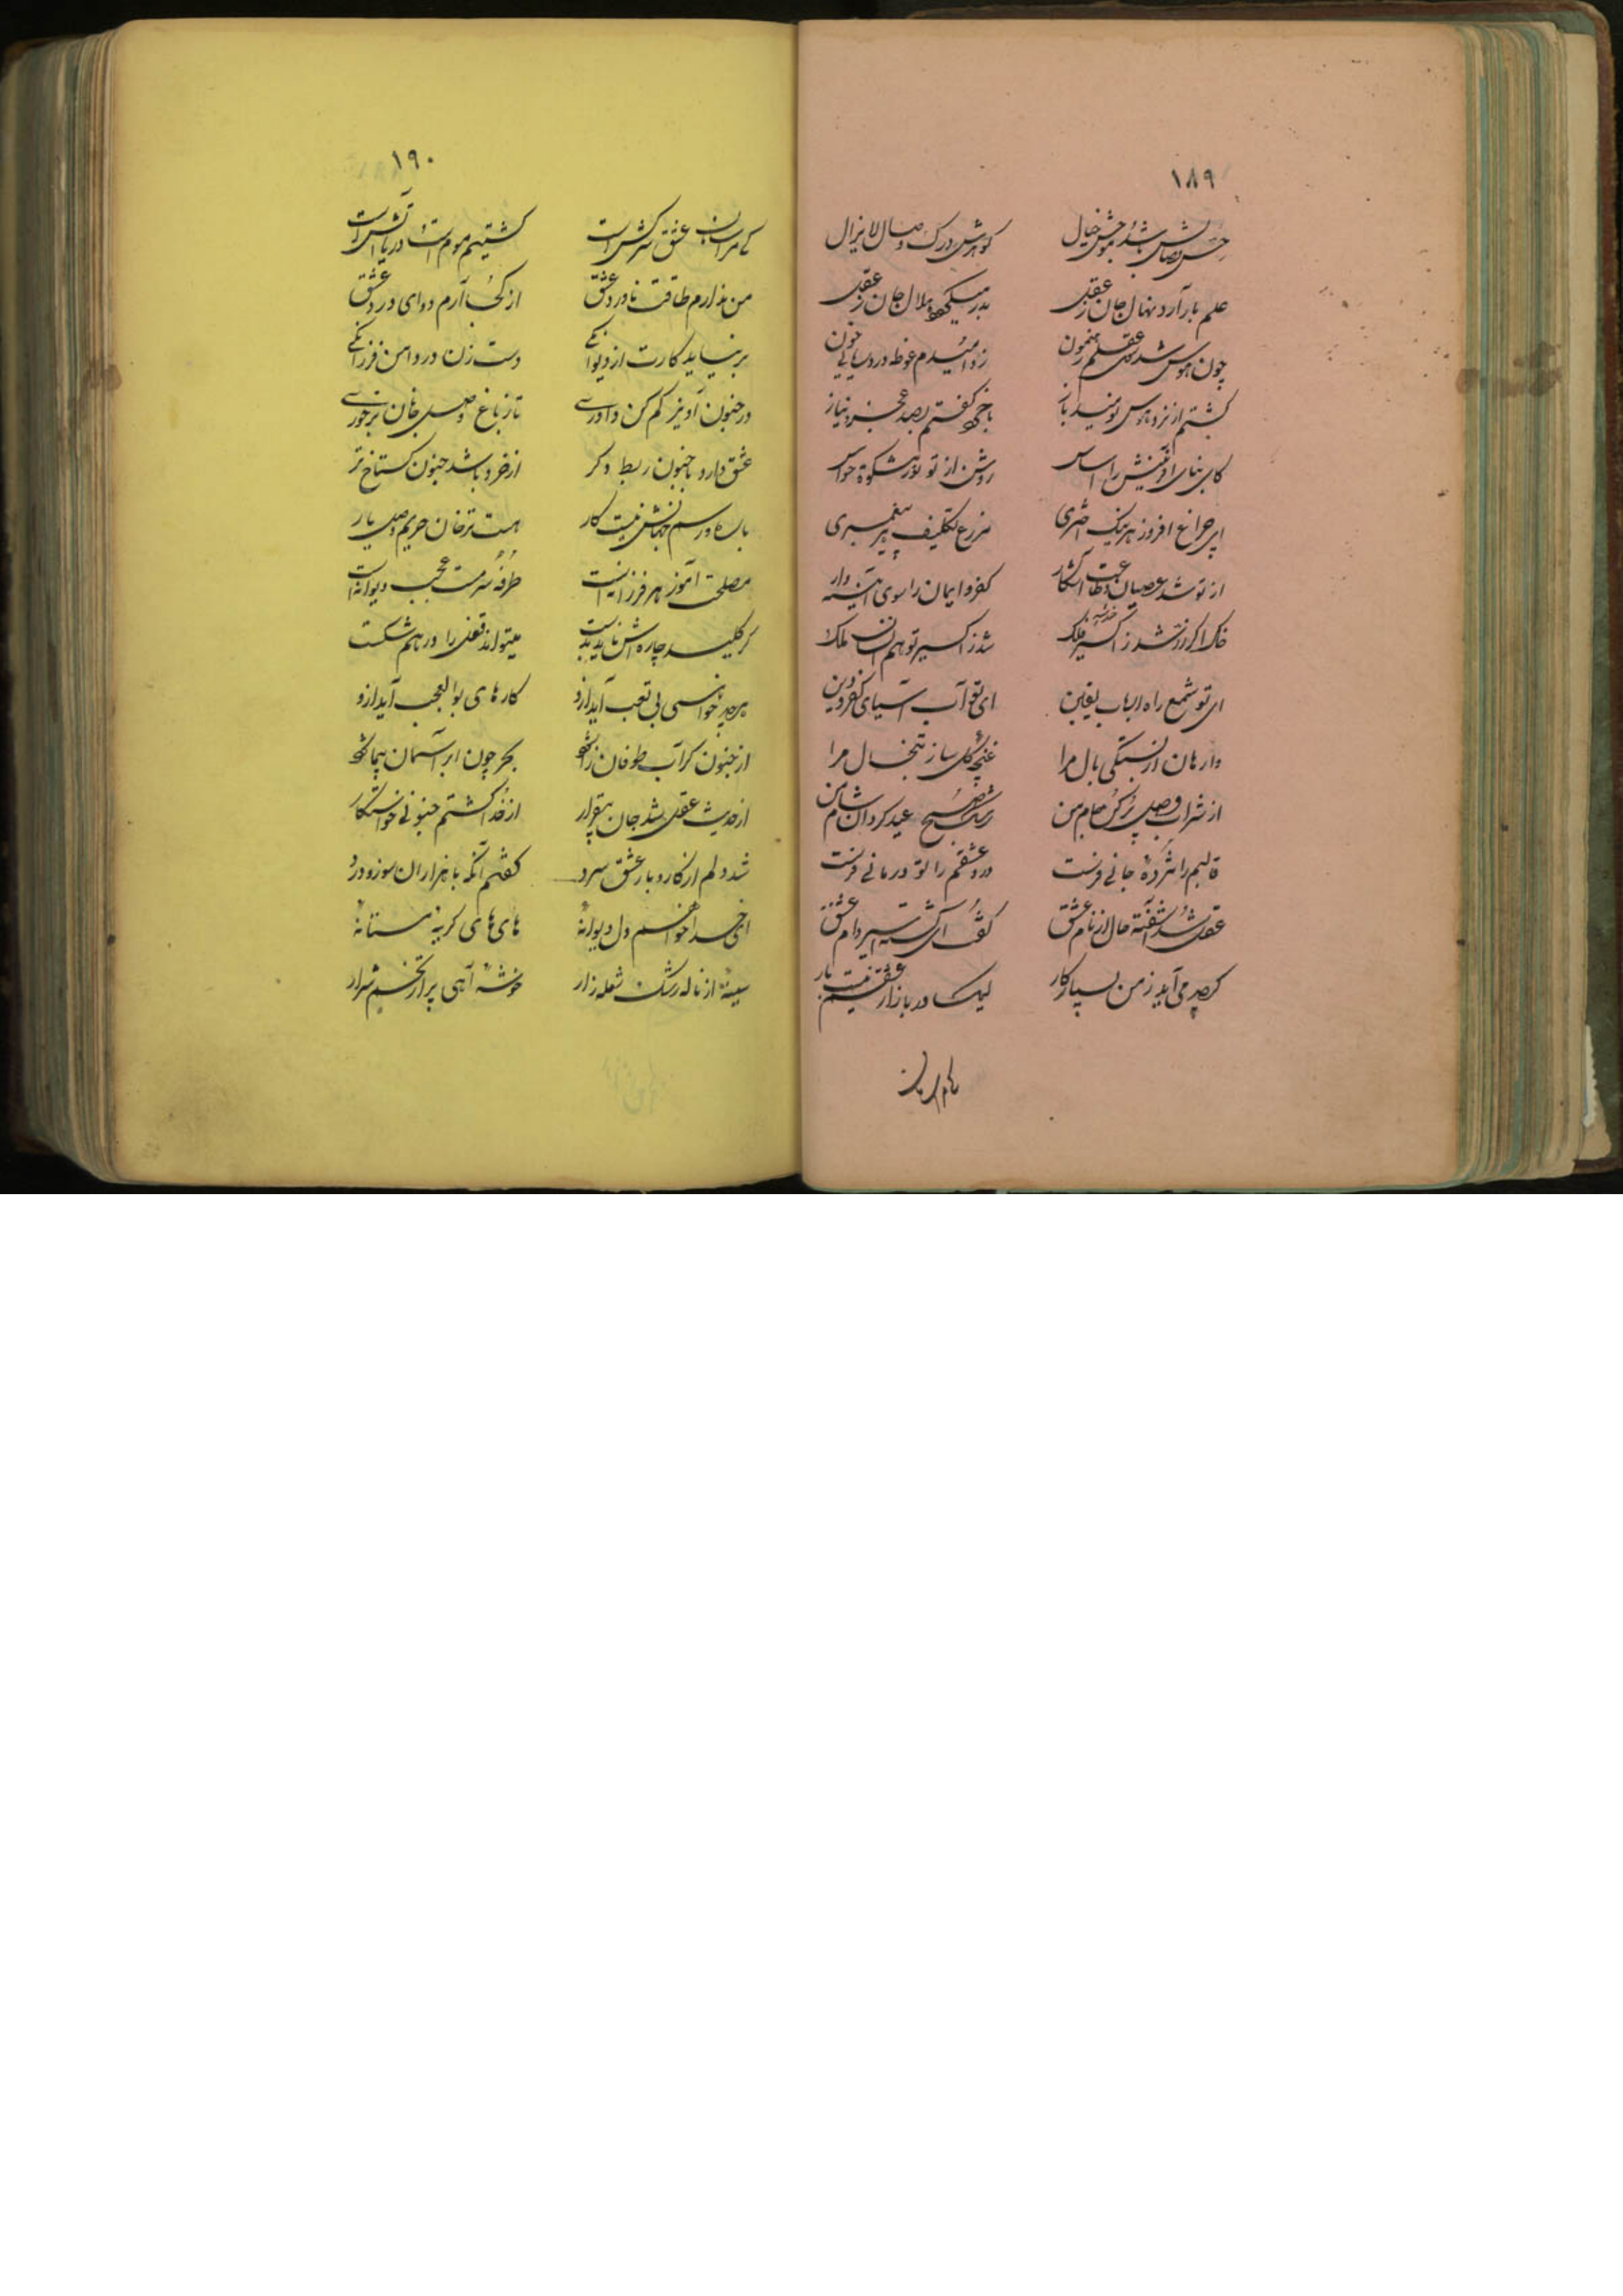 ۱۸۹
علم بار آرد نهال جان ز عقل
بدر میگردد هلال جان ز عقل
چون هوس شد عقلم رهنمون
زد امیدم غوطه در دریای خون
گشتم از نزد هوس نومید باز
با خرد گفتم بصد عجز و نیاز
کای بنای آفرینش را اساس
روشن از تو نور مشکوة حواس
ای چراغ افروز هر نیک اختری
مزرع تکلیف پیغمبری
از تو شد عصیان و طاعت آشکار
کفر و ایمان را سوی آئینه دار
خاک اگر زر شد ز اکسیر فلک
شد ز اکسیر تو هم انسان ملک
ای تو شمع راه ارباب یقین
ای تو آب آسیای کفر و دین
وارهان از بستگی بال مرا
غنچه گل ساز تبخال مرا
از شراب وصل پر کن جام من
رشک صبح عید گردان شام من
قالبم را مژده جانی فرست
درد عشقم را تو درمانی فرست
عقل شد آشفته حال از نام عشق
گفت ای گشته اسیر دام عشق
گرچه می‌آید ز من بسیار کار
لیک در بازار عشقم نیست بار
کامران
۱۹۰
کامران عشق سرکش است
کشتیم موم است و دریا آتش است
من ندارم طاقت ناورد عشق
از کجا آرم دوای درد عشق
بر نیاید کارت از دیوانگی
دست زن در دامن فرزانگی
در جنون آویز کم کن داوری
تا ز باغ وصل جانان برخوری
عشق دارد با جنون ربط دگر
از خرد باشد جنون گستاخ‌تر
با ره و رسم جهانش نیست کار
هست ترخان حریم وصل یار
مصلحت آموز هر فرزانه است
طرفه سرمست عجب دیوانه است
گر کلید چاره‌اش ناید بدست
میتواند قفل را درهم شکست
هرچه خواهی بی تعب آید ازو
کارهای بوالعجب آید ازو
از جنون گر آب طوفان‌زا شود
بحر چون ابر آسمان پیما شود
از حدیث عقل شد جان بیقرار
از خدا گشتم جنونی خواستگار
شد دلم از کار و بار عشق سرد
گفتم آنگه با هزاران سوز و درد
ای خدا خواهم دل دیوانه
های های گریه مستانه
سینه از ناله رشک شعله زار
خوشه آهی پر از تخم شرار